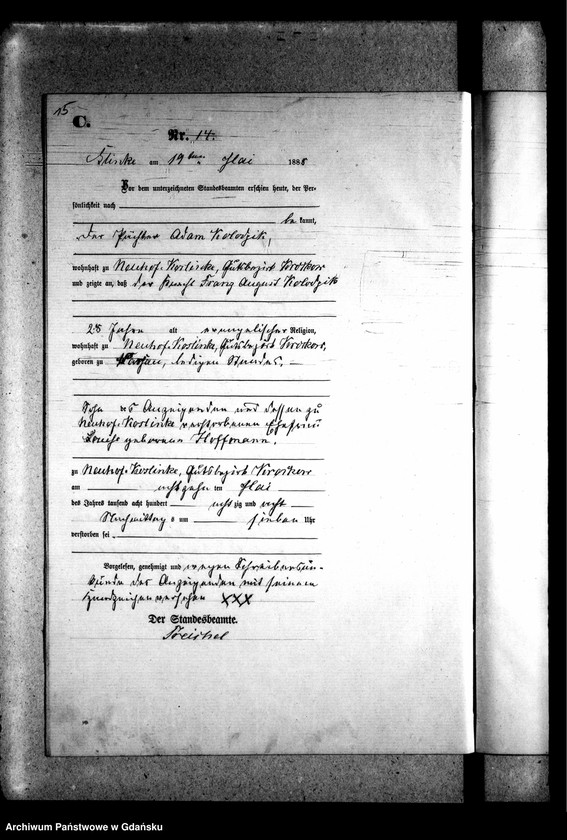 15
C.
Nr. 14.
am 19 ten Mai 1888
Vor dem unterzeichneten Standesbeamten erschien heute, der Per-
sönlichkeit nach
be kannt,
der Adam Kolodzik,
wohnhaft zu Neuhof-Koslinke, Gutsbezirk Krockow
und zeigte an, daß der Knecht Franz August Kolodzik
28 Jahre alt evangelischer Religion,
wohnhaft zu Neuhof-Koslinke, Gutsbezirk Krockow,
geboren zu ledigen Standes,
Sohn des Anzeigenden und dessen zu
Neuhof-Koslinke verstorbenen Ehefrau
Louise geborene Hoffmann.
zu Neuhof-Koslinke, Gutsbezirk Krockow
am achtzehn ten Mai
des Jahres tausend acht hundert acht zig und acht
Nachmittag s um sieben Uhr
verstorben sei.
Vorgelesen, genehmigt und wegen Schreibensun-
kunde des Anzeigenden mit seinem
Handzeichen versehen XXX
Der Standesbeamte.
Archiwum Państwowe w Gdańsku